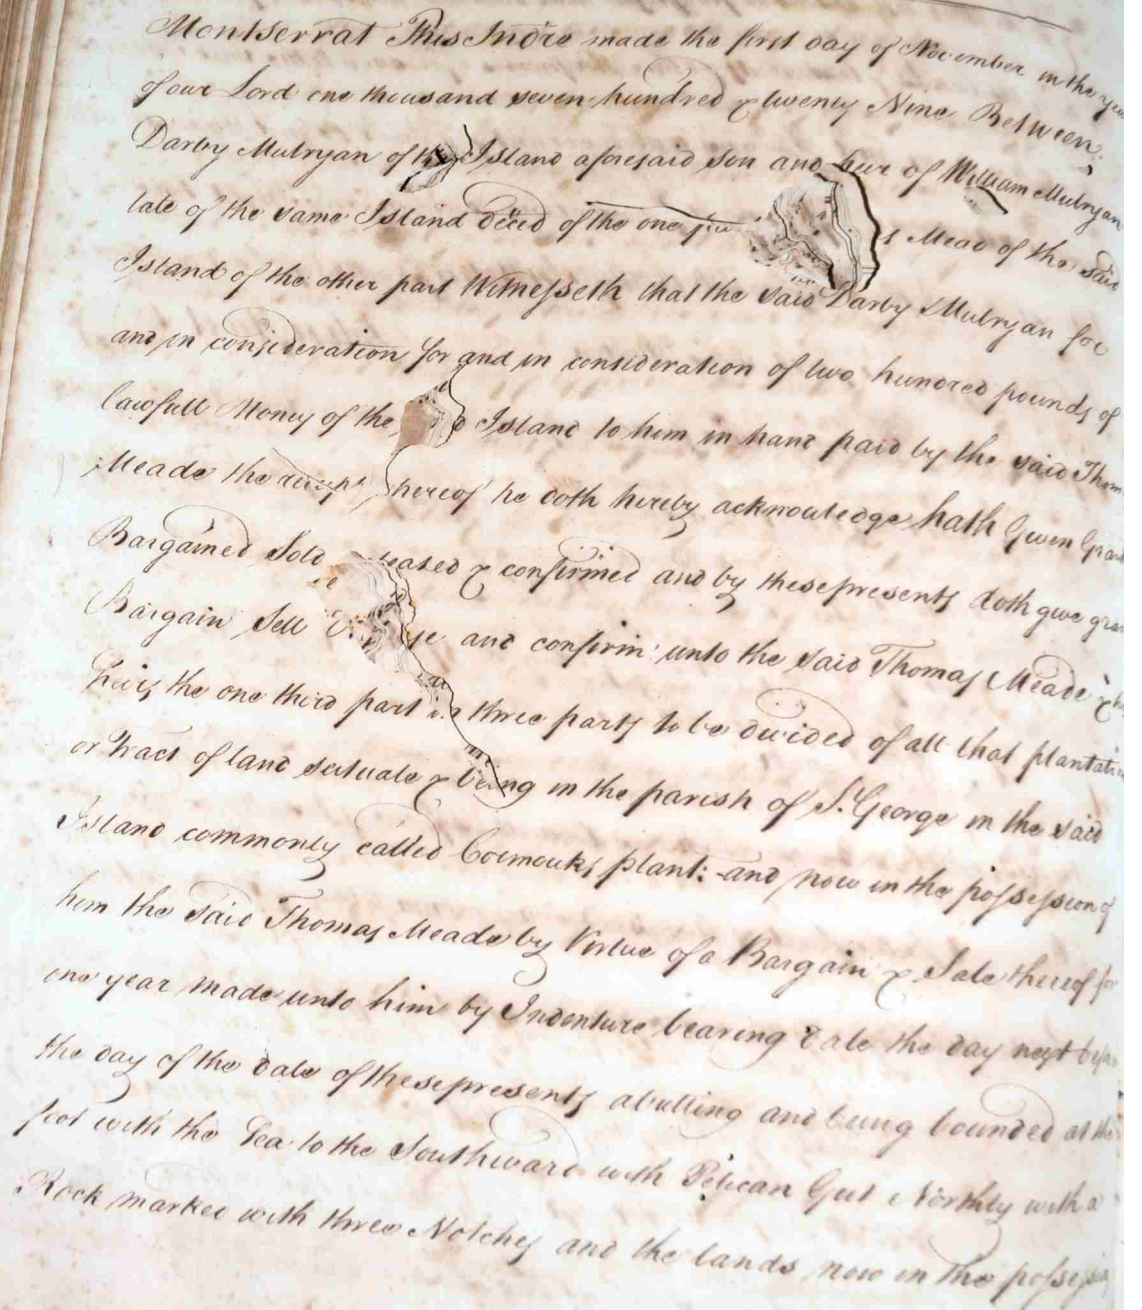 Montserrat This Indre made the first day of November in the year
of our Lord one thousand seven hundred & twenty Nine Between
Darby Mulryan of the Island aforesaid son and heir of William Mulryan
late of the same Island deced of the one Mead of the said
Island of the other part Witnesseth that the said Darby Mulryan for
and in consideration for and in consideration of two hundred pounds of
lawfull Money of the Island to him in hand paid by the said Thom
Meade the receipt hereof he doth hereby acknowledge hath Given Gran
Bargained Sold eased & confirmed and by these presents doth give gra
Bargain Sell and confirm unto the said Thomas Meade &
heirs the one third part in three parts to be divided of all that plantati
or tract of land scituate & being in the parish of St. George in the said
Island commonly called plant: and now in the possession of
him the said Thomas Meade by Virtue of a Bargain & Sale thereof for
one year made unto him by Indenture bearing date the day next befo
the day of the date of these presents abutting and being bounded at the
foot with the Sea to the Southward with Pelican Gut Northly with a
Rock marked with three Notches and the lands now in the possess